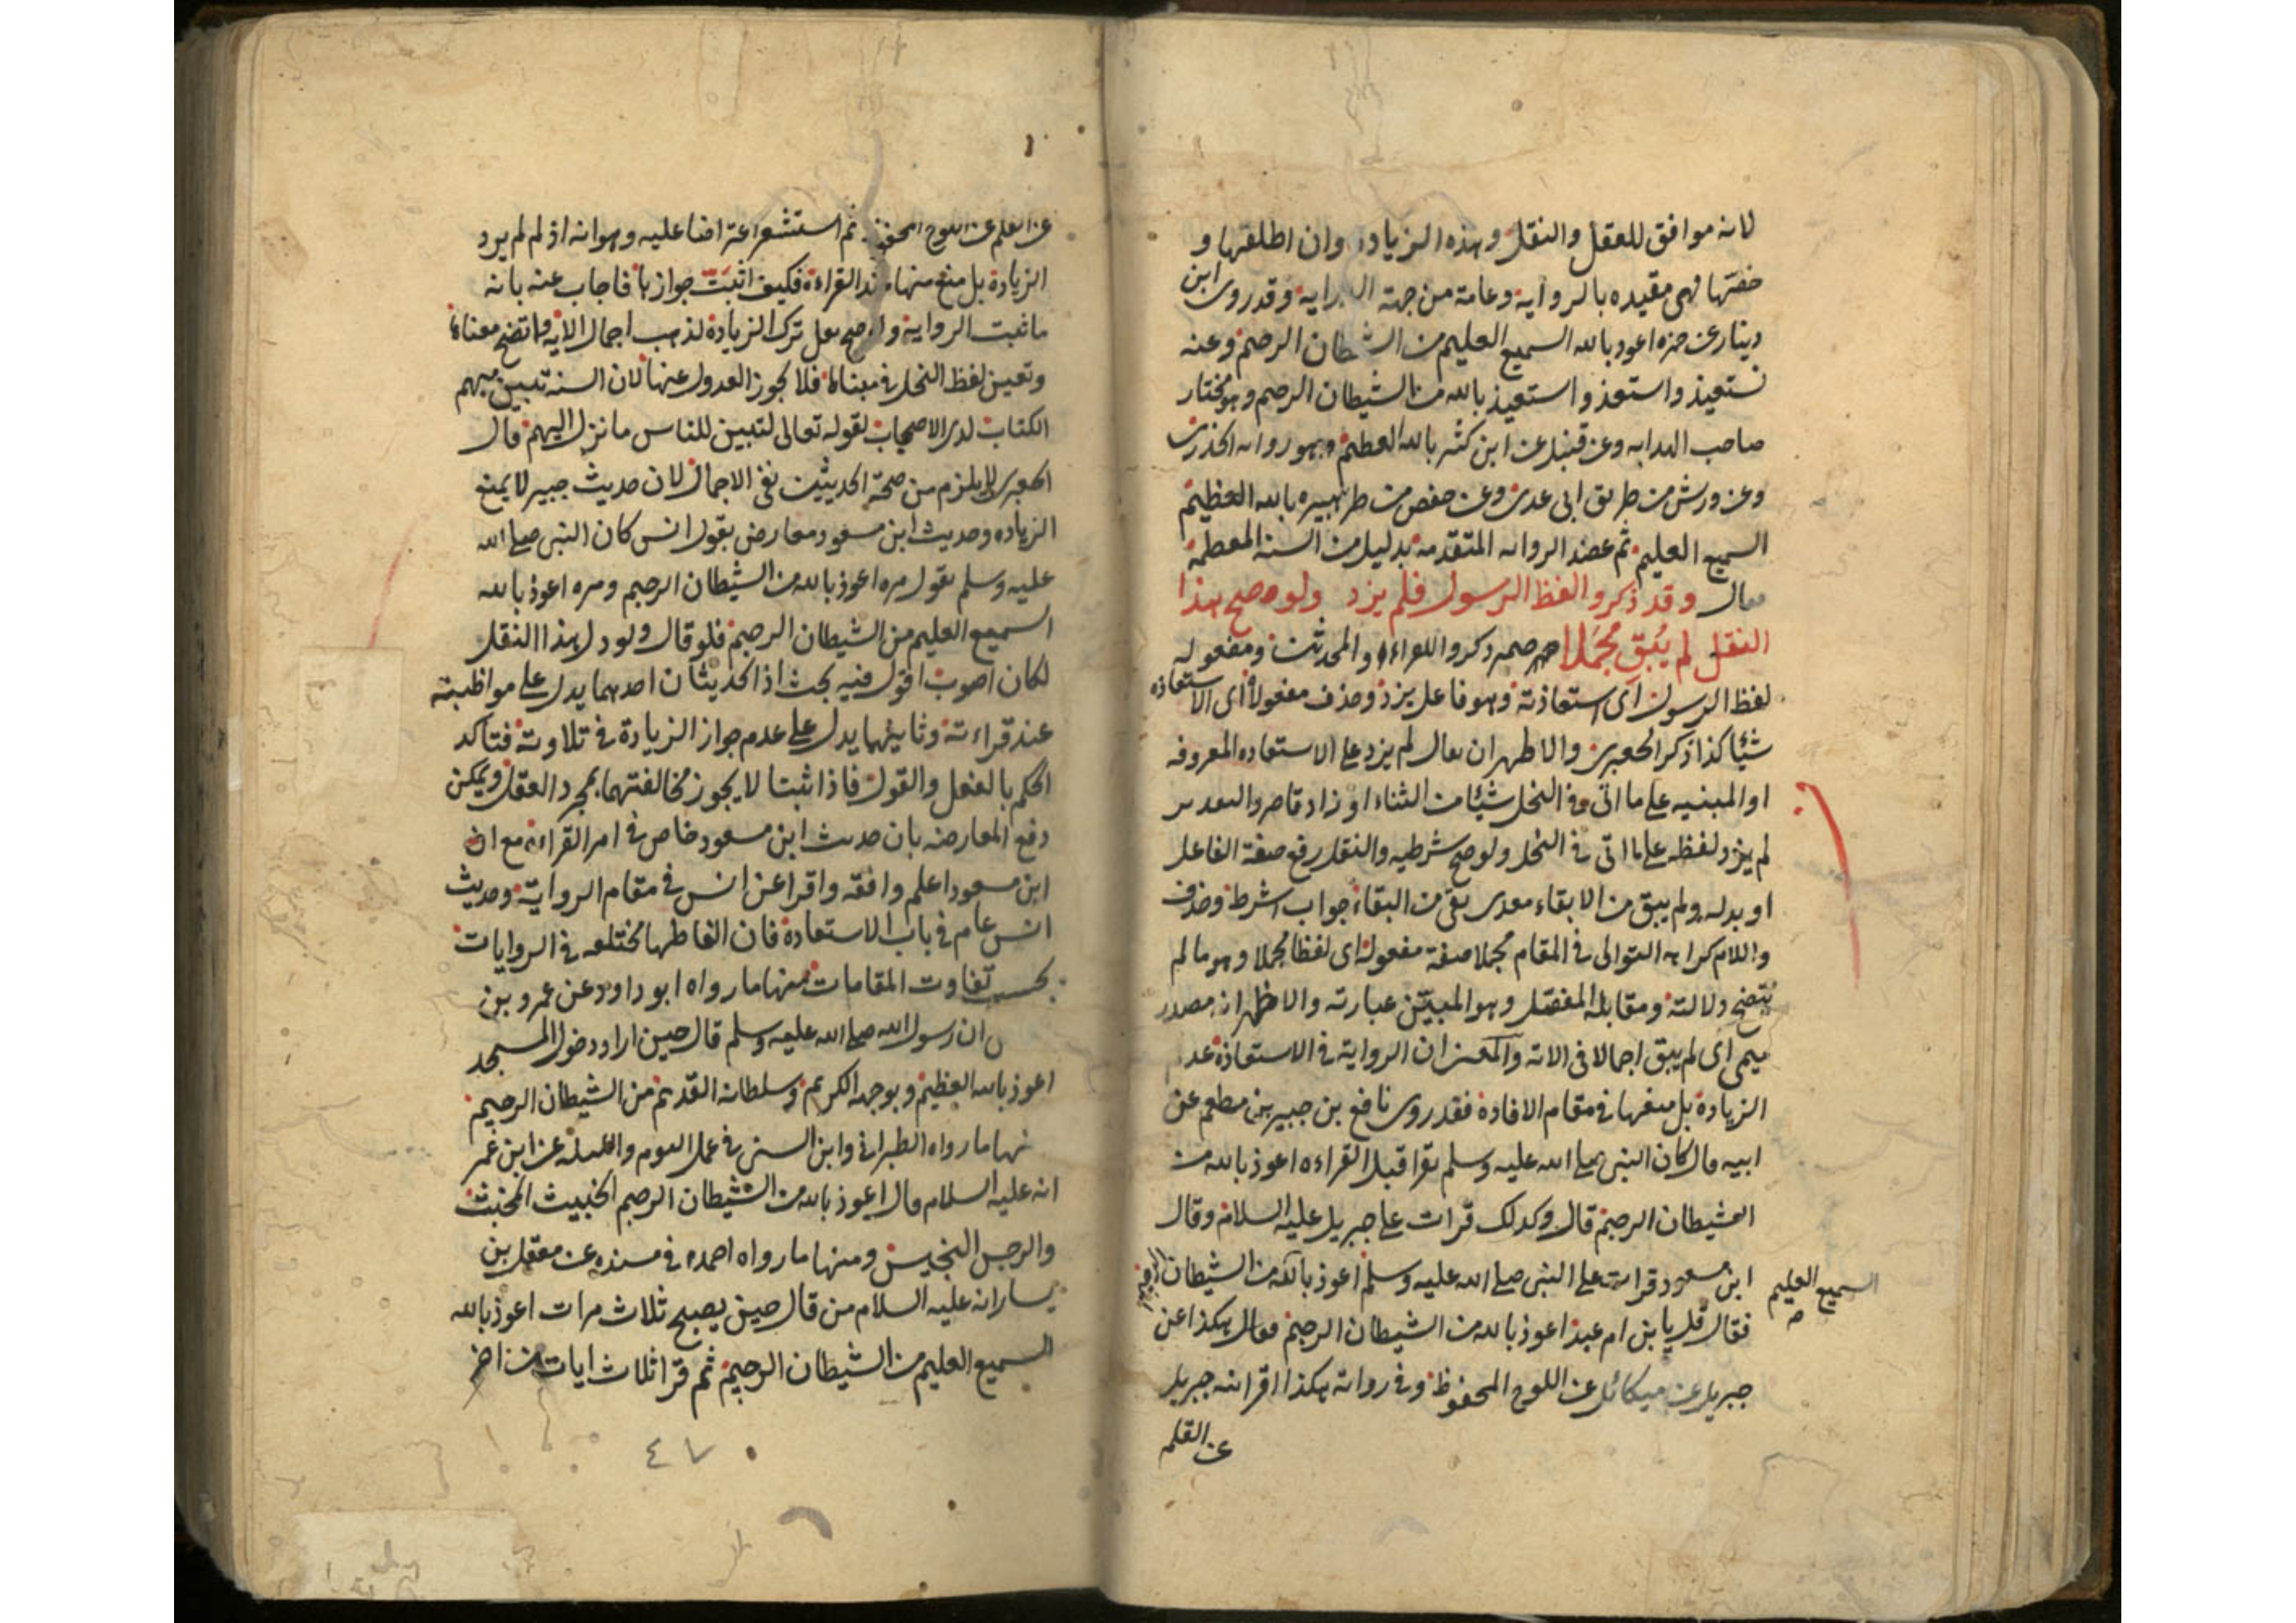 لانه موافق للعقل والنقل وهذه الزيادة وان اطلقها و
خفتها فهى مقيده بالرواية وعامة من جهة الدراية وقد روى ابن
دينار عن حمزه اعوذ بالله السميع العليم من الشيطان الرجيم وعنه
نستعيذ واستعذ واستعيذ بالله من الشيطان الرجيم وهو مختار
صاحب الهدايه وعن قنبل عن ابن كثير بالله العظيم وهو روايه
وعن ورش من طريق ابى عدى وعن حفص من طريق هبيره بالله العظيم
السميع العليم ثم عضد الروايه المتقدمه بدليل من السنة المعظمة
فقال وقد ذكروا لفظ الرسول فلم يزد ولو صح هذا
النقل لم يُبقِ مُجمَلا ذكروا للقراء والمحدثين ومفعوله
لفظ الرسول اى استعاذته وهو فاعل يزد وحذف مفعولاه اى الاستعاذه
شيئا كذا ذكر الجعبرى والاظهر ان يقال لم يزد على الاستعاذه المعروفه
او المبنيه على ما اتى فى النحل شيئا من الثناء او زاد قاصر والتقدير
لم يزد لفظه على ما اتى فى النحل ولو صح شرطيه والنقل رفع صفة الفاعل
او بدله ولم يبق من الابقاء معدى بقى من البقاء جواب الشرط وحذف
واللام كراهة التوالى فى المقام مجملا صفة مفعوله اى لفظا مجملا وهو ما لم
يتضح دلالته ومقابله المفصل وهو المبين عبارته والاظهر انه مصدر
ميمى اى لم يبق اجمالا فى الاية والمعنى ان الرواية فى الاستعاذة عدم
الزيادة بل منعها فى مقام الافادة فقد روى نافع بن جبير بن مطعم عن
ابيه قال كان النبى صلى الله عليه وسلم يقرا قبل القراءه اعوذ بالله من
الشيطان الرجيم قال وكذلك قرات على جبريل عليه السلام وقال
ابن مسعود قرات على النبى صلى الله عليه وسلم اعوذ بالله من الشيطان الرجيم
السميع العليم
فقال قل يا بن ام عبد اعوذ بالله من الشيطان الرجيم فقال هكذا عن
جبريل عن ميكائل عن اللوح المحفوظ وفى رواية هكذا اقرانيه جبريل
عن القلم
عن القلم عن اللوح المحفوظ ثم استشعر اعتراضا عليه وهو انه اذ لم لم يرد
الزيادة بل منع منها عند القراءة فكيف اثبتَّ جوازها فاجاب عنه بانه
ما ثبت الرواية ولو صح نقل ترك الزيادة لذهب اجمال الاية واتضح معناها
وتعين لفظ النحل فى مبناها فلا يجوز العدول عنها لان السنة تبين مبهم
الكتاب لدى الاصحاب لقوله تعالى لتبين للناس ما نزل اليهم قال
الجعبرى لا يلزم من صحة الحديثين نفى الاجمال لان حديث جبير لا يمنع
الزياده وحديث ابن مسعود معارض بقول انس كان النبى صلى الله
عليه وسلم يقول مره اعوذ بالله من الشيطان الرجيم ومره اعوذ بالله
السميع العليم من الشيطان الرجيم فلو قال ولو دل هذا النقل
لكان اصوب اقول فيه بحث اذ الحديثان احدهما يدل على مواظبته
عند قراءته وثانيهما يدل على عدم جواز الزيادة فى تلاوته فتاكد
الحكم بالفعل والقول فاذا ثبتا لا يجوز مخالفتهما بمجرد العقل ويمكن
دفع المعارضه بان حديث ابن مسعود خاص فى امر القراءة مع ان
ابن مسعود اعلم وافقه واقرا عن انس فى مقام الرواية وحديث
انس عام فى باب الاستعاذة فان الفاظها مختلفه فى الروايات
بحسب تفاوت المقامات منها ما رواه ابو داود عن عمرو بن
ان رسول الله صلى الله عليه وسلم قال حين اراد دخول المسجد
اعوذ بالله العظيم وبوجهه الكريم وسلطانه القديم من الشيطان الرجيم
منها ما رواه الطبرانى وابن السنى فى عمل اليوم والليله عن ابن عمر
انه عليه السلام قال اعوذ بالله من الشيطان الرجيم الخبيث المخبث
والرجس النجس ومنها ما رواه احمد فى مسنده عن معقل بن
يسار انه عليه السلام من قال حين يصبح ثلاث مرات اعوذ بالله
السميع العليم من الشيطان الرجيم ثم قرا ثلاث ايات من اخر
٤٧